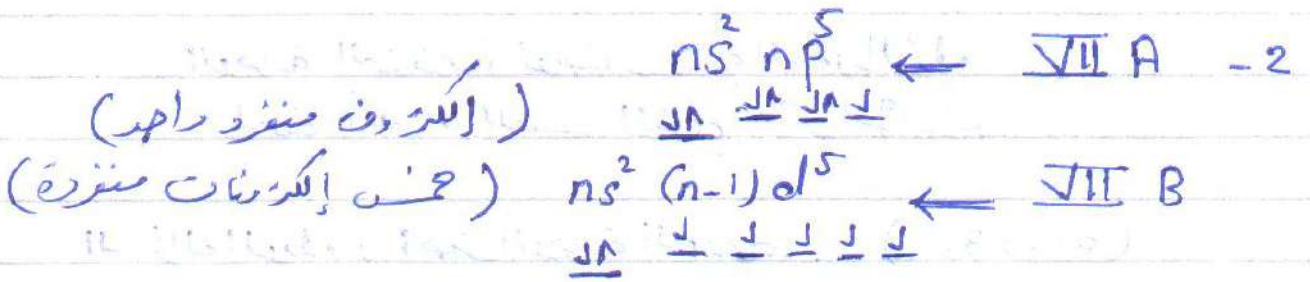 2- VII A ← ns² np⁵
(إلكترون منفرد واحد)
VII B ← ns² (n-1)d⁵ (خمس إلكترونات منفردة)